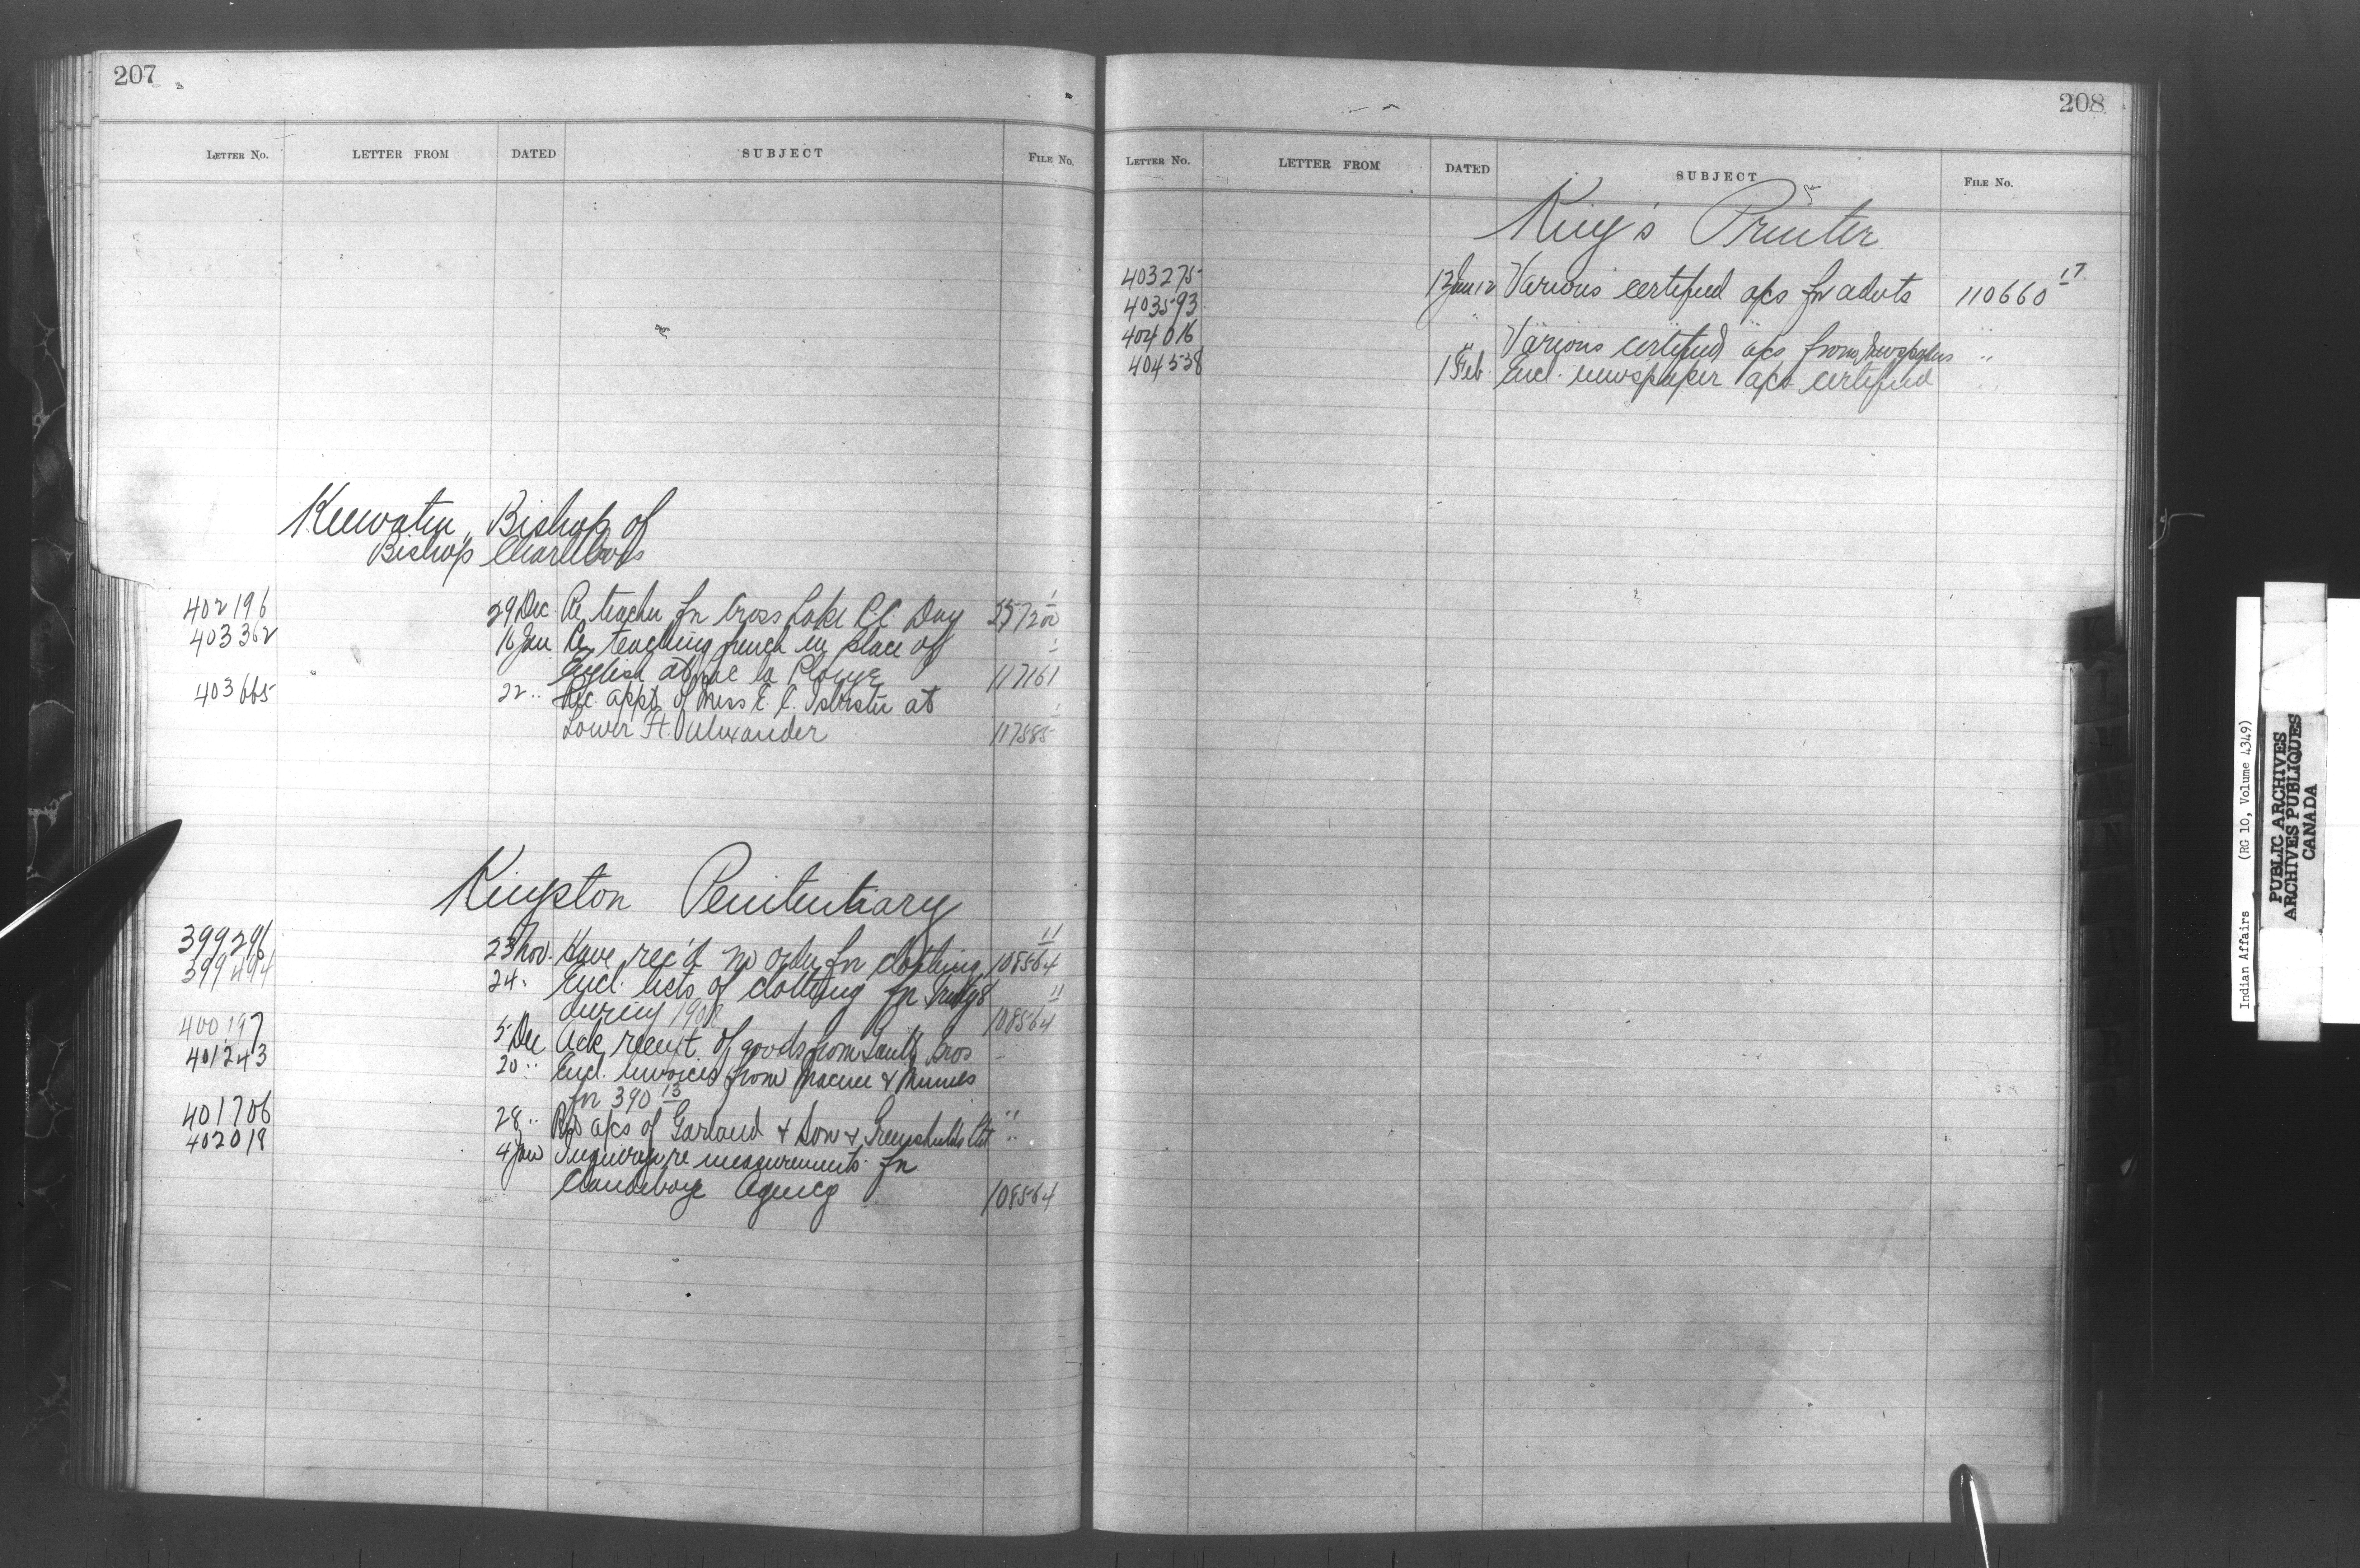 207
LETTER No. LETTER FROM DATED SUBJECT FILE No.
Keewatin, Bishop of
Bishop Charlebois
402196 29 Dec Re teacher for Cross Lake R.C. Day 1
403362 16 Jan Re teaching french in place of 1
English at la 117161
403665 22 " Rec. appt of Miss E. C. Isbister at 1
Lower Ft. Alexander 117585
Kingston Penitentiary
399296 23 Nov. Have rec'd no order for clothing 11 108564
399494 24 " Encl. lists of clothing for 11
during 108564
400197 5 Dec Ack receipt of goods from Gault Bros "
401243 20 " Encl. invoices from &
for 390 13
401706 28 " a/cs of Garland & Son & Greenshields Ltd "
402018 4 Jan re measurements for "
Clandeboye Agency 108564
208
LETTER No. LETTER FROM DATED SUBJECT FILE No.
King's Printer
403275 12 Jan 12 Various certified a/cs for advts 110660 17
403593 " " " " "
404016 " Various certified a/cs from newspapers "
404538 1 Feb. Encl. newspaper a/cs certified "
Indian Affairs (RG 10, Volume 4349)
PUBLIC ARCHIVES
ARCHIVES PUBLIQUES
CANADA